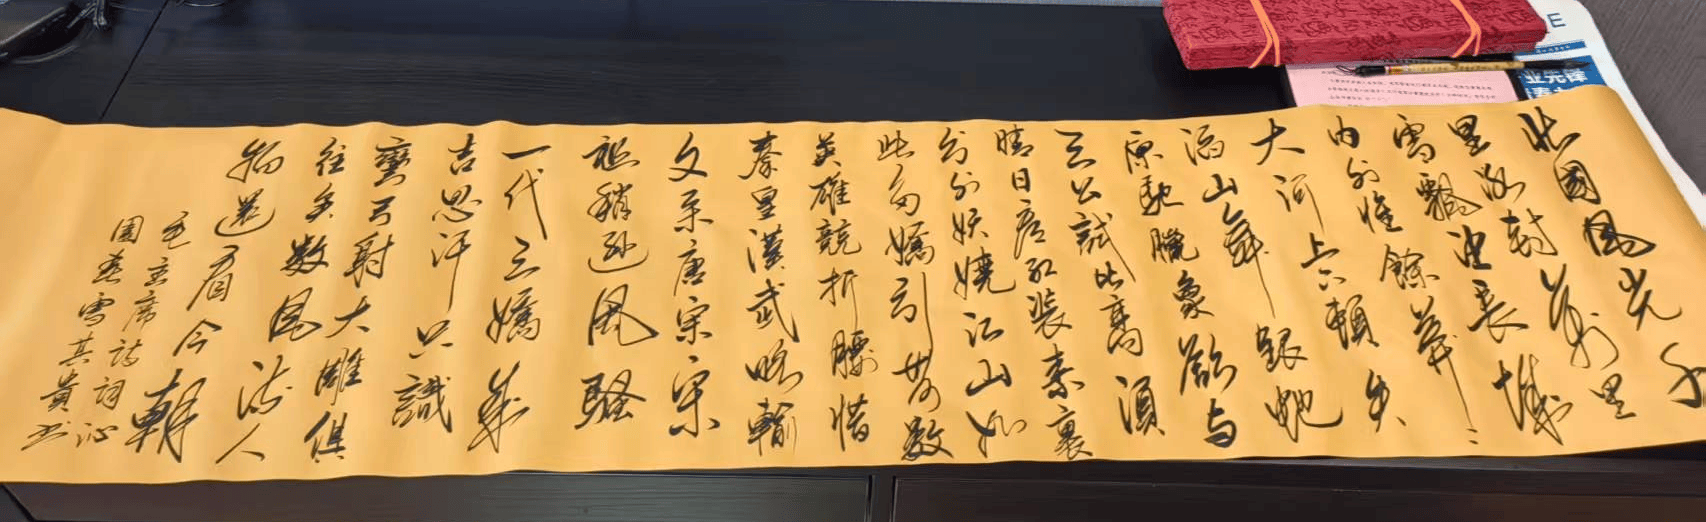 北國風光千
里冰封萬里
雪飄望長城
内外惟餘莽〻
大河上下頓失
滔山舞銀蛇
原馳臘象欲与
天公試比高須
晴日看红装素裹
分外妖娆江山如
此多嬌引無數
英雄競折腰惜
秦皇漢武略輸
文采唐宗宋
祖稍逊風騷
一代天嬌成
吉思汗只識
彎弓射大雕俱
往矣數風流人
物還看今朝
毛主席詩詞沁
園春雪其貴书
业先锋
E